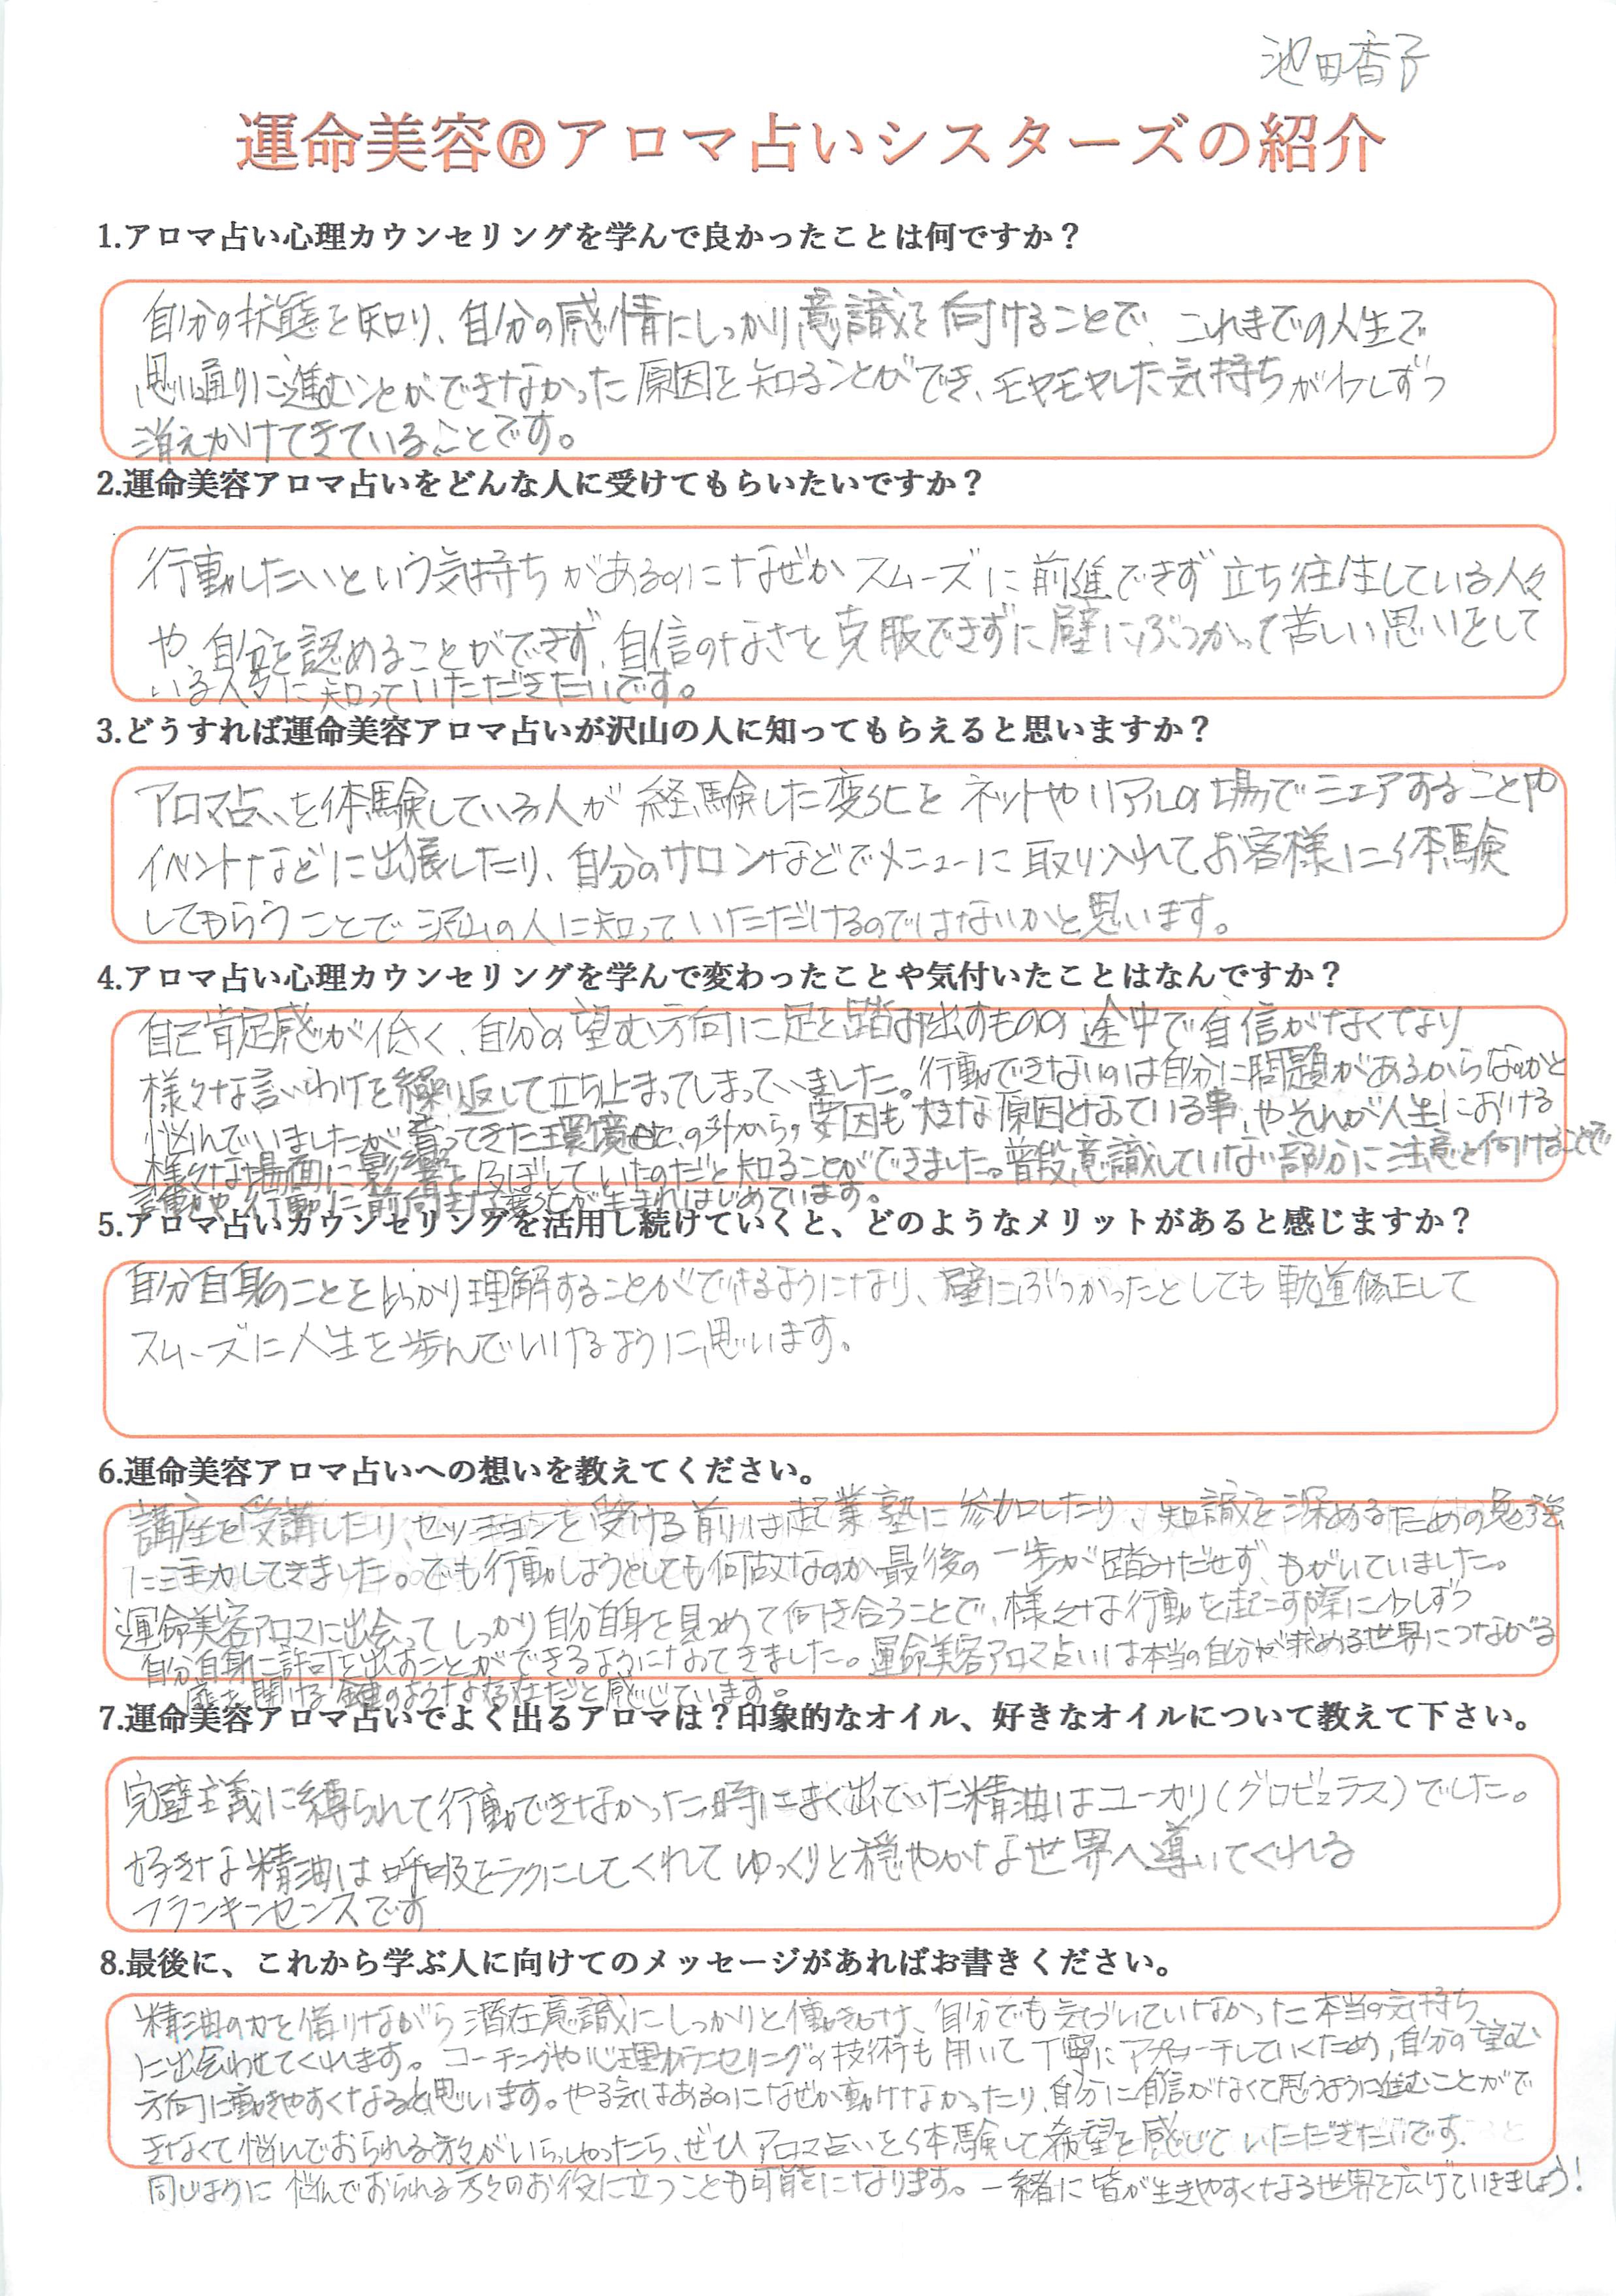 池田香子
運命美容®アロマ占いシスターズの紹介
1.アロマ占い心理カウンセリングを学んで良かったことは何ですか？
自分の状態を知り、自分の感情にしっかり意識を向けることで、これまでの人生で
思い通りに進むことができなかった原因を知ることができ、モヤモヤした気持ちが少しずつ
消えかけてきていることです。
2.運命美容アロマ占いをどんな人に受けてもらいたいですか？
行動したいという気持ちがあるのになぜかスムーズに前進できず立ち往生している人々
や、自分を認めることができず、自信のなさを克服できずに壁にぶつかって苦しい思いをして
いる人々に知っていただきたいです。
3.どうすれば運命美容アロマ占いが沢山の人に知ってもらえると思いますか？
アロマ占いを体験している人が経験した変化をネットやリアルの場でシェアすることや
イベントなどに出展したり、自分のサロンなどでメニューに取り入れてお客様に体験
してもらうことで沢山の人に知っていただけるのではないかと思います。
4.アロマ占い心理カウンセリングを学んで変わったことや気付いたことはなんですか？
自己肯定感が低く、自分の望む方向に足を踏み出すものの途中で自信がなくなり
様々な言いわけを繰り返して立ち止まってしまっていました。行動できないのは自分に問題があるからなのかと
悩んでいましたが育ってきた環境の外からの要因も大きな原因となっている事、やそれが人生における
様々な場面に影響を及ぼしていたのだと知ることができました。普段意識していない部分に注意を向けることで
言動や行動に前向きな変化が生まれはじめています。
5.アロマ占いカウンセリングを活用し続けていくと、どのようなメリットがあると感じますか？
自分自身のことをしっかり理解することができるようになり、壁にぶつかったとしても軌道修正して
スムーズに人生を歩んでいけるように思います。
6.運命美容アロマ占いへの想いを教えてください。
講座を受講したり、セッションを受ける前は起業塾に参加したり、知識を深めるための勉強
に注力してきました。でも行動しようとしても何故なのか最後の一歩が踏みだせず、もがいていました。
運命美容アロマに出会ってしっかり自分自身を見つめて向き合うことで、様々な行動を起こす際に少しずつ
自分自身に許可を出すことができるようになってきました。運命美容アロマ占いは本当の自分が求める世界につながる
扉を開ける鍵のような存在だと感じています。
7.運命美容アロマ占いでよく出るアロマは？印象的なオイル、好きなオイルについて教えて下さい。
完璧主義に縛られて行動できなかった時によく出ていた精油はユーカリ（グロビュラス）でした。
好きな精油は呼吸をラクにしてくれてゆっくりと穏やかな世界へ導いてくれる
フランキンセンスです
8.最後に、これから学ぶ人に向けてのメッセージがあればお書きください。
精油の力を借りながら潜在意識にしっかりと働きかけ、自分でも気づいていなかった本当の気持ち
に出会わせてくれます。コーチングや心理カウンセリングの技術も用いて丁寧にアプローチしていくため、自分の望む
方向に動きやすくなると思います。やる気はあるのになぜか動けなかったり、自分に自信がなくて思うように進むことがで
きなくて悩んでおられる方々がいらっしゃったら、ぜひアロマ占いを体験して希望を感じていただきたいです。
同じように悩んでおられる方々のお役に立つことも可能になります。一緒に皆が生きやすくなる世界を広げていきましょう！